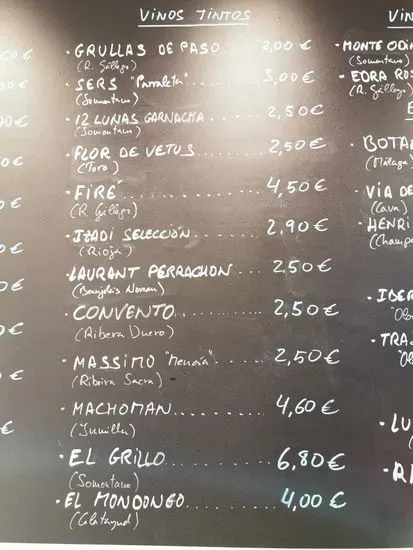 VINOS TINTOS
· GRULLAS DE PASO 2,00 €
(R. Gállego)
· SERS "Parraleta" 3,00 €
(Somontano)
· 12 LUNAS GARNACHA 2,50 €
(Somontano)
· FLOR DE VETUS 2,50 €
(Toro)
· FIRÉ 4,50 €
(R. Gállego)
· IZADI SELECCIÓN 2,90 €
(Rioja)
· LAURANT PERRACHON 2,50 €
· CONVENTO 2,50 €
(Ribera Duero)
· MASSIMO "Mencía" 2,50 €
(Ribeira Sacra)
· MACHOMAN 4,60 €
(Jumilla)
· EL GRILLO 6,80 €
(Somontano)
· EL MONDONGO 4,00 €
(Calatayud)
VIN
· MONTE ODI
(Somontano)
· EDRA RO
(R. Gállego)
· BOTA
(Málaga)
· VIA DE
(Cava)
· HENRI
(Champa
· IBER
· TRA
· LU